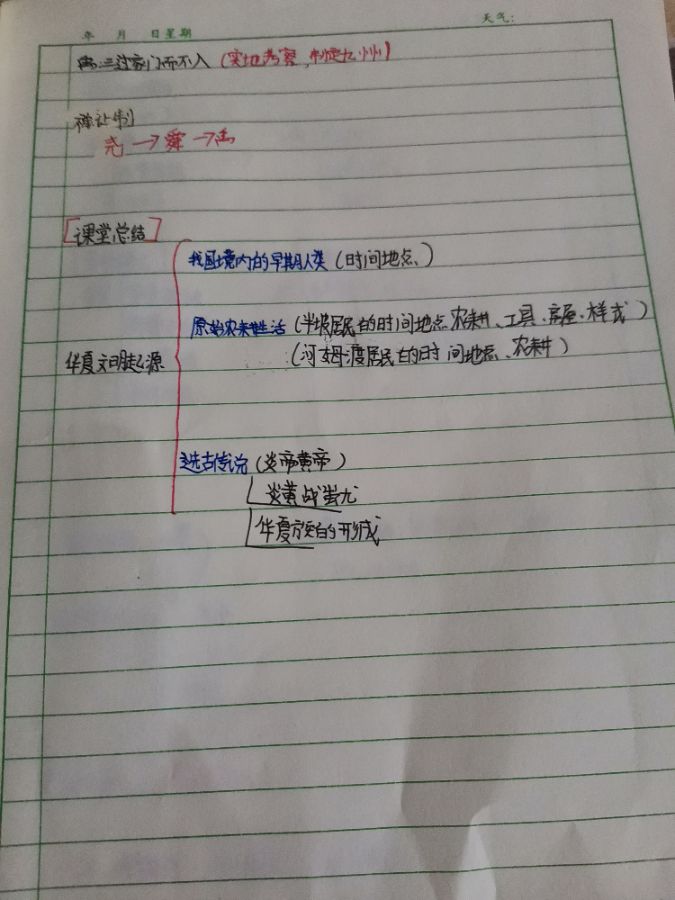 年 月 日 星期 天气:
禹三过家门而不入（实地考察，制定九州）
禅让制
尧→舜→禹
[课堂总结]
我国境内的早期人类（时间地点、）
原始农耕生活（半坡居民的时间地点、农耕、工具、房屋、样式）
（河姆渡居民的时间地点、农耕）
华夏文明起源
远古传说（炎帝黄帝）
炎黄战蚩尤
华夏族的形成